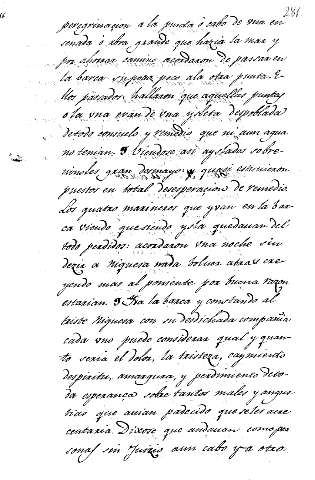 281
peregrinacion a la punta o cabo de una en
senada o abra grande que hazia la mar y
por ahorrar camino acordaron de passar en
la barca su poco a poco a la otra punta. E
llos passados hallaron que aquellas puntas
o la una eran de una ysleta despoblada
de todo consuelo y remedio que ni aun agua
no tenian. Viendose asi ayslados sobre
vinoles gran desmayo y quasi estuvieron
puestos en total desesperacion de remedio
Los quatro marineros que yvan en la bar
ca viendo que siendo ysla quedavan del
todo perdidos acordaron una noche sin
dezir a Niquesa nada bolver atras cre
yendo mas al poniente por buena razon
estarian. Yda la barca y constando al
triste Niquesa con su desdichada compañia
cada uno puede considerar qual y quan
to seria el dolor, la tristeza, caymiento
de spiritu, amargura, y perdimiento de to
da esperança sobre tantos males y angus
tias que avian padecido que se les acre
centaria. Dixose que andavan como per
sonas sin Juizio aun cabo y a otro.